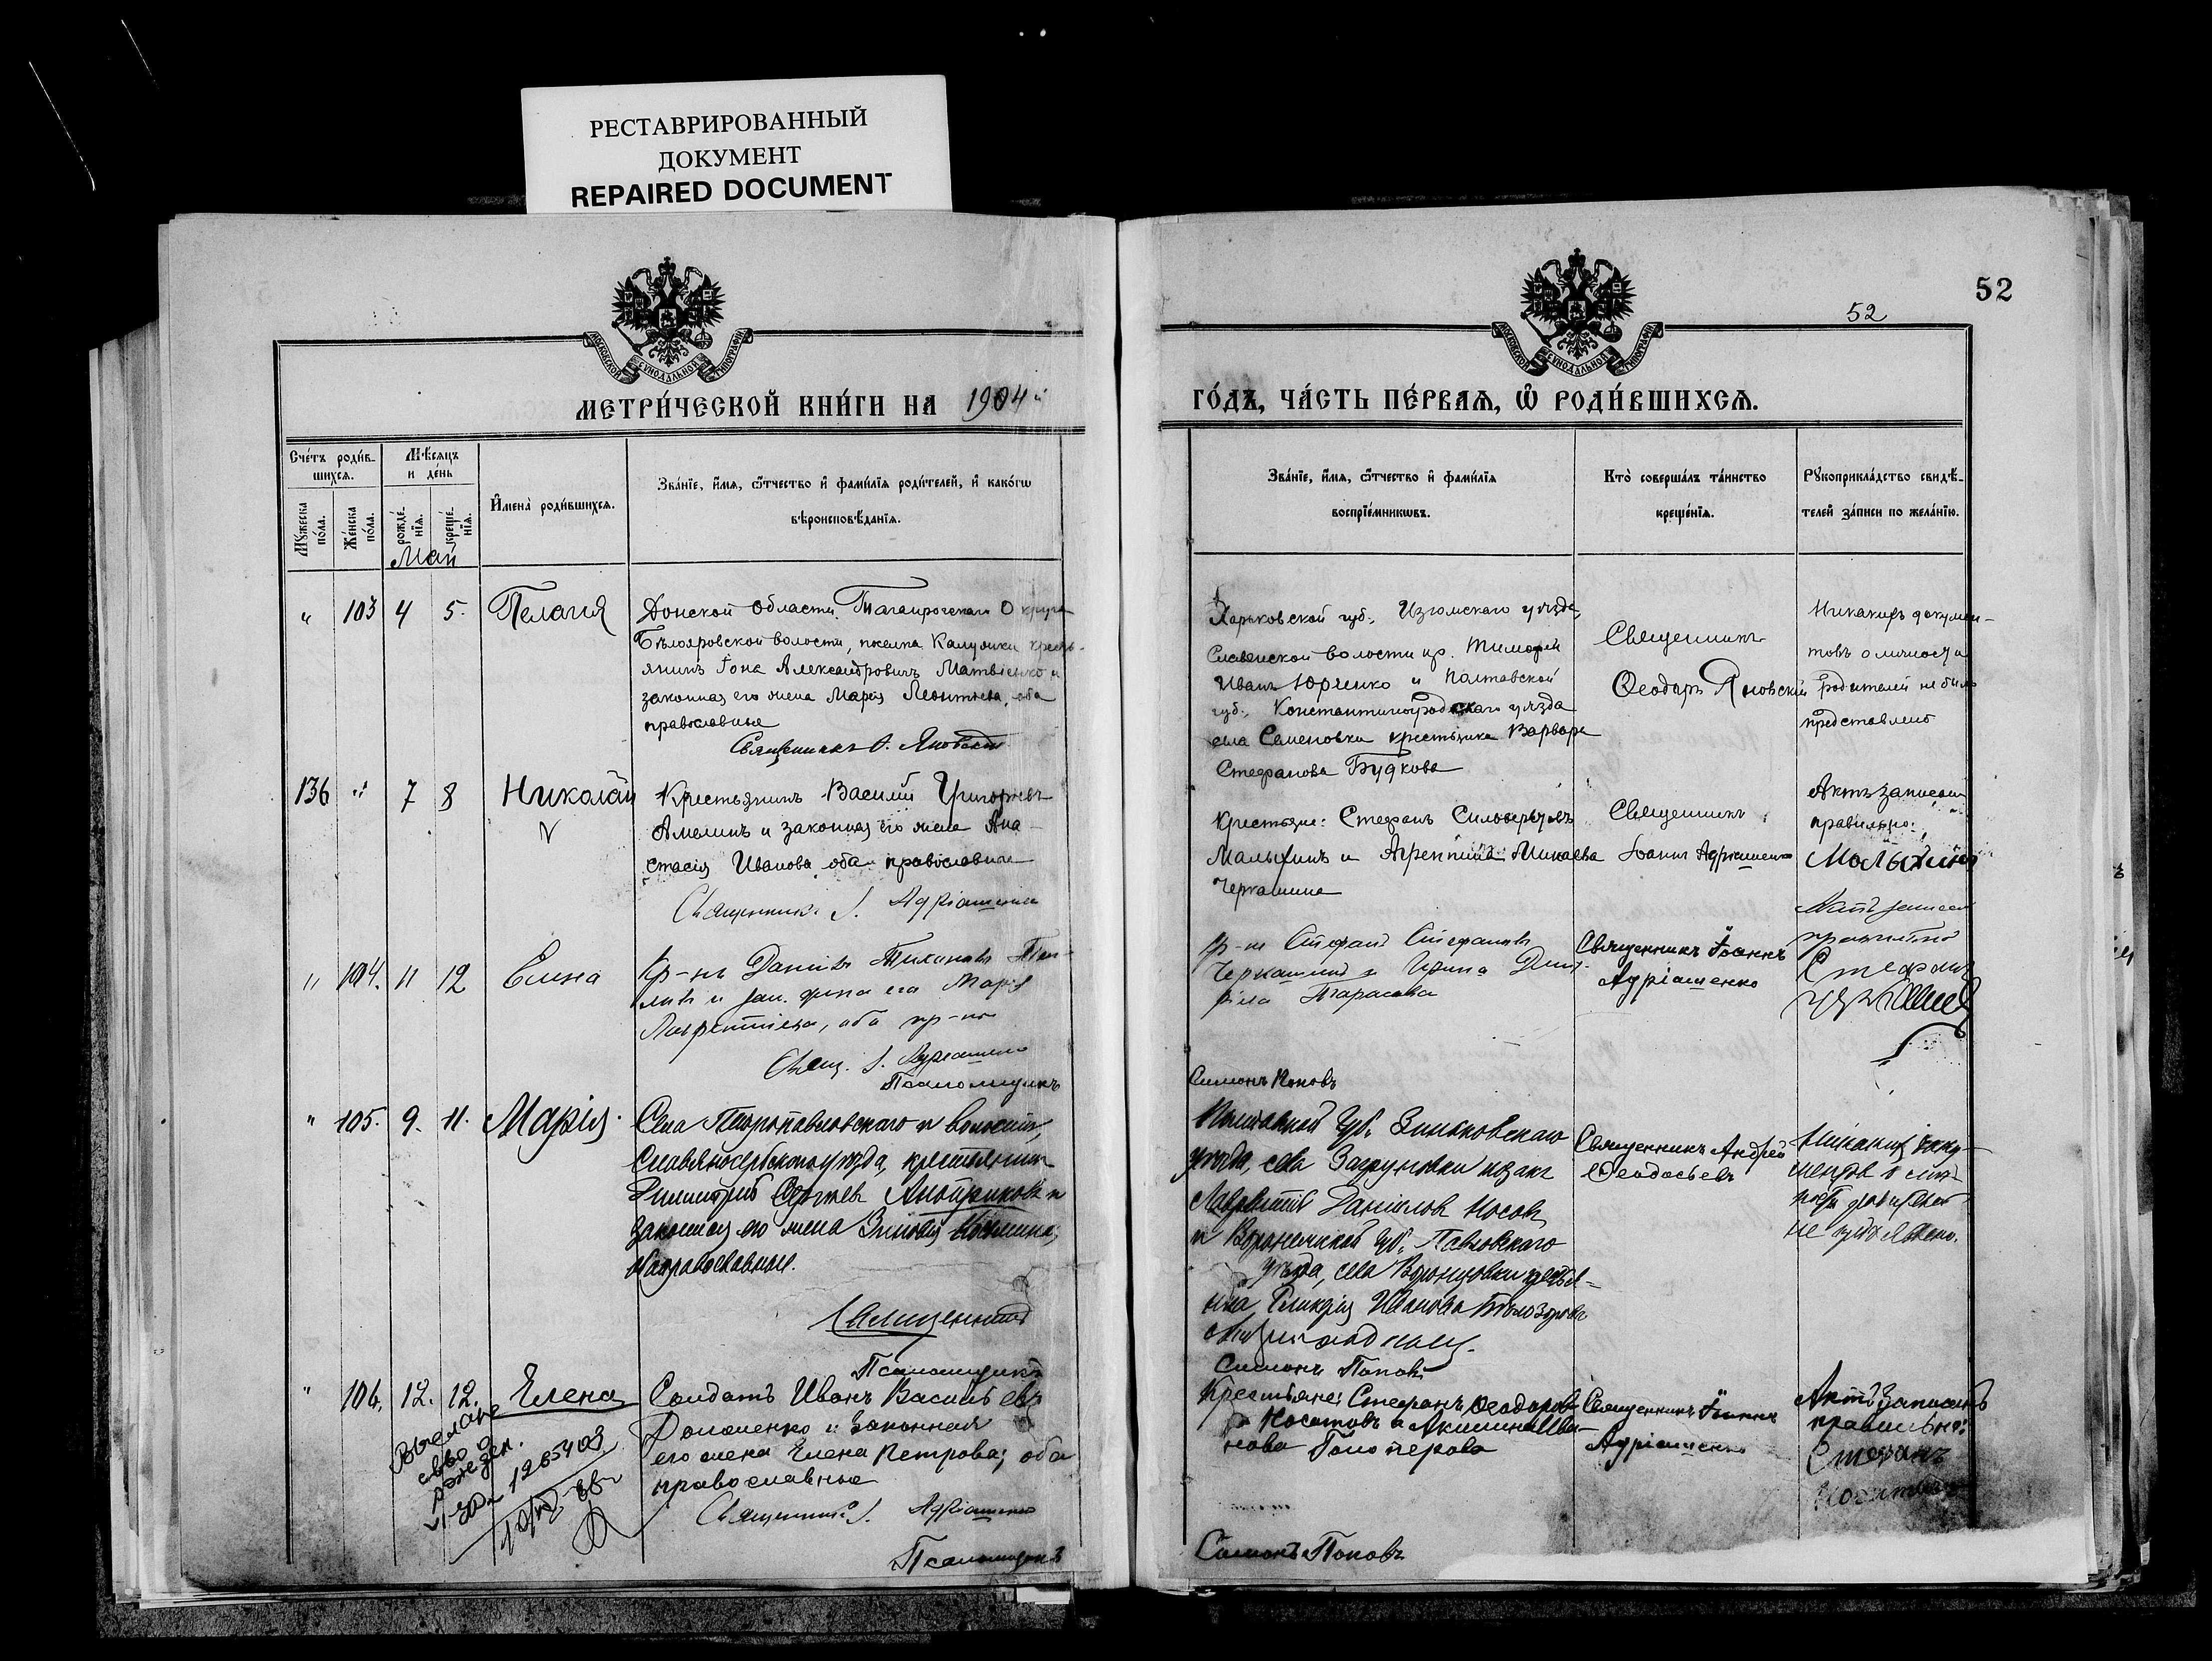 РЕСТАВРИРОВАННЫЙ
ДОКУМЕНТ
REPAIRED DOCUMENT
52
52
МОСКОВСКОЙ СѴНОДАЛЬНОЙ ТИПОГРАФІИ
МОСКОВСКОЙ СѴНОДАЛЬНОЙ ТИПОГРАФІИ
МЕТРИ́ЧЕСКОЙ КНИ́ГИ НА 1904й
ГО́ДЪ, ЧА́СТЬ ПЕ́РВАЯ, Ѡ РОДИ́ВШИХСЯ.
Сче́тъ роди́в-
шихся.
Мꙋ́жеска по́ла.
Же́нска по́ла.
Мѣ́сяцъ
и де́нь
рожде́-
нїя.
креще́-
нїя.
Май
И҆мена̀ роди́вшихся.
Зва́нїе, и҆́мя, ѻ҆́тчество и҆ фами́лїя роди́телей, и҆ како́гѡ
вѣроисповѣ́данїя.
Зва́нїе, и҆́мя, ѻ҆́тчество и҆ фами́лїя
воспрїе́мникѡвъ.
Кто̀ соверша́лъ та́инство
креще́нїя.
Рꙋкоприкла́дство свидѣ́-
телей за́писи по жела́нїю.
" 103 4 5. Пелагія
Донской Области Таганрогскаго Округа
Бѣлояровской волости, поселка Калиновки кресть-
янинъ Іона Александровичъ Матвіенко и
законная его жена Марія Леонтьева, оба
православные
Священникъ Ѳ. Яновскій
Харьковской губ., Изюмскаго уѣзда,
Славянской волости кр. Тимофей
Иванъ Юрченко и Полтавской
губ., Константиноградскаго уѣзда
села Семеновки крестьянка Варвара
Стефанова Будкова
Священникъ
Ѳеодоръ Яновскій
Никакихъ докумен-
товъ о личности
родителей не было
представлено
136 " 7 8 Николай
Крестьянинъ Василій Григорьевъ
Амелинъ и законная его жена Ана-
стасія Иванова, оба православные
Священникъ І. Адріашенко
Крестьяне: Стефанъ Силовергуевъ
Малыхинъ и Агрепина Минаева
Черкашина
Священникъ
Іоаннъ Адріашенко
Актъ записанъ
правильно:
Малыхинъ
" 104. 11 12 Елена
Кр-нъ Даніилъ Тихоновъ
и зак. жена его Марія
Лаврентіева, оба пр-ные
Свящ. І. Адріашенко
Псаломщикъ
Кр-не Стефанъ Стефановъ
Черкашинъ и Ирина
Тарасова
Симонъ Поповъ
Священникъ Іоаннъ
Адріашенко
Актъ записанъ
правильно
Стефанъ
" 105. 9. 11. Марія.
Села Петропавловскаго и волости,
Славяносербскаго уѣзда, крестьянинъ
Димитрій Сергѣевъ и
законная его жена Зиновія
оба православные.
Священникъ
Псаломщикъ
Полтавской Губ. Зиньковскаго
уѣзда, села Загруновки козакъ
Лаврентій Даніиловъ Носовъ
и Воронежской Губ. Павловскаго
уѣзда, села Воронцовки крестья-
нка Гликерія Иванова
Симонъ Поповъ
Священникъ Андрей
Ѳеодосьевъ
Никакихъ доку-
ментовъ о лич-
ности
не предъявлено.
" 106. 12. 12. Елена
Солдатъ Иванъ Васильевъ
Фоломенко и законная
его жена Елена Петрова; оба
православные
Священникъ І. Адріашенко
Псаломщикъ
Крестьяне: Стефанъ Ѳеодоровъ
Носатовъ и Акилина Ива-
нова
Симонъ Поповъ
Священникъ Іоаннъ
Адріашенко
Актъ записанъ
правильно:
Стефанъ
Носатовъ
Выслано
св-во
о рожден.
1265403